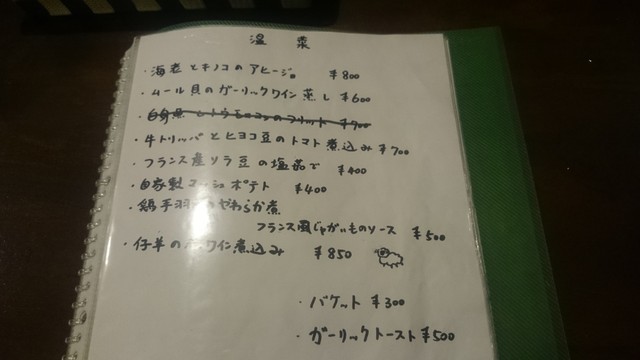 温菜
・海老とキノコのアヒージョ ¥800
・ムール貝のガーリックワイン蒸し ¥600
・白身魚とトウモロコシのフリット ¥700
・牛トリッパとヒヨコ豆のトマト煮込み ¥700
・フランス産ソラ豆の塩茹で ¥400
・自家製マッシュポテト ¥400
・鶏手羽 やわらか煮
フランス風じゃがいものソース ¥500
・仔羊の ワイン煮込み ¥850
・バケット ¥300
・ガーリックトースト ¥500